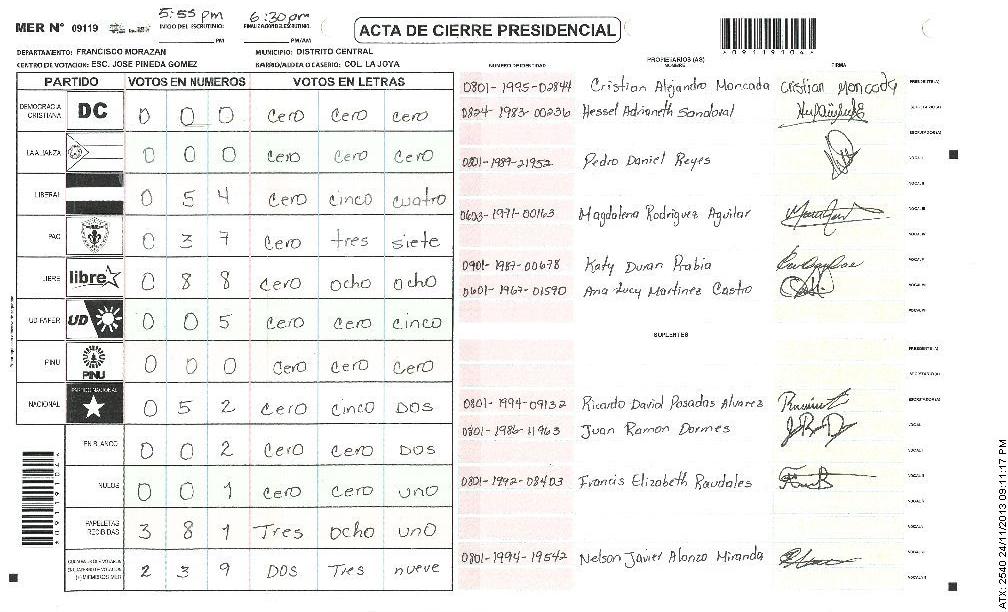 5:55 pm 6:30pm
MER N° 09119 INICIO DEL ESCRUTINIO: PM FINALIZACION DEL ESCRUTINIO: PM/AM
ACTA DE CIERRE PRESIDENCIAL
DEPARTAMENTO: FRANCISCO MORAZAN MUNICIPIO: DISTRITO CENTRAL
CENTRO DE VOTACION: ESC. JOSE PINEDA GOMEZ BARRIO/ALDEA O CASERIO: COL. LA JOYA
PARTIDO VOTOS EN NUMEROS VOTOS EN LETRAS
DEMOCRACIA CRISTIANA DC 0 0 0 Cero Cero Cero
LA ALIANZA 0 0 0 Cero Cero Cero
LIBERAL 0 5 4 Cero cinco cuatro
PAC 0 3 7 Cero tres siete
LIBRE libre 0 8 8 Cero ocho ocho
UD FAPER UD 0 0 5 Cero Cero cinco
PINU PINU 0 0 0 Cero Cero Cero
NACIONAL PARTIDO NACIONAL 0 5 2 Cero cinco DOS
EN BLANCO 0 0 2 Cero Cero DOS
NULOS 0 0 1 Cero Cero uno
PAPELETAS RECIBIDAS 3 8 1 Tres ocho uno
2 3 9 DOS Tres nueve
NUMERO DE IDENTIDAD PROPIETARIOS (AS) NOMBRE FIRMA
0801-1995-02844 Cristian Alejandro Moncada Cristian Moncada PRESIDENTE(A)
0824-1983-00236 Hessel Adrianeth Sandoval SECRETARIO(A)
ESCRUTADOR(A)
0801-1989-21952 Pedro Daniel Reyes VOCAL I
VOCAL II
0603-1971-00163 Magdalena Rodriguez Aguilar VOCAL III
VOCAL IV
0901-1987-00678 Katy Duran Rabia VOCAL V
0601-1967-01590 Ana Lucy Martinez Castro VOCAL VI
VOCAL VII
SUPLENTES
PRESIDENTE(A)
SECRETARIO(A)
0801-1994-09132 Ricardo David Posadas Alvarez ESCRUTADOR(A)
0801-1986-11963 Juan Ramon Dormes VOCAL I
VOCAL II
0801-1992-08403 Francis Elizabeth Raudales VOCAL III
VOCAL IV
VOCAL V
0801-1994-19542 Nelson Javier Alonzo Miranda VOCAL VI
VOCAL VII
ATX: 2540 24/11/2013 09:11:17 PM